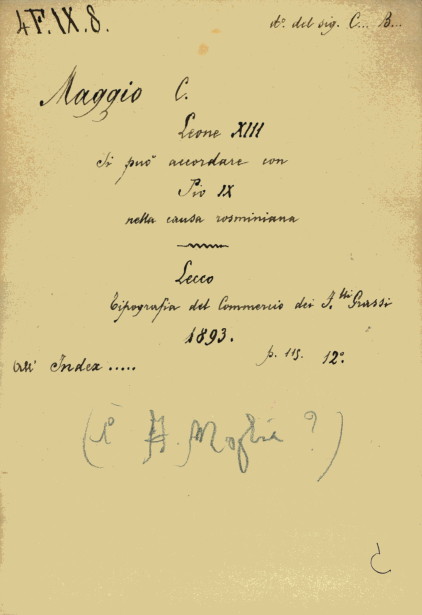 4F.IX.8.
d.º del sig. C... B...
Maggio C.
Leone XIII
si può accordare con
Pio IX
nella causa rosminiana
Lecco
Tipografia del Commercio dei F.lli Grassi
1893.
p. 115. 12º.
All' Index .....
(è A. Moglia ?)